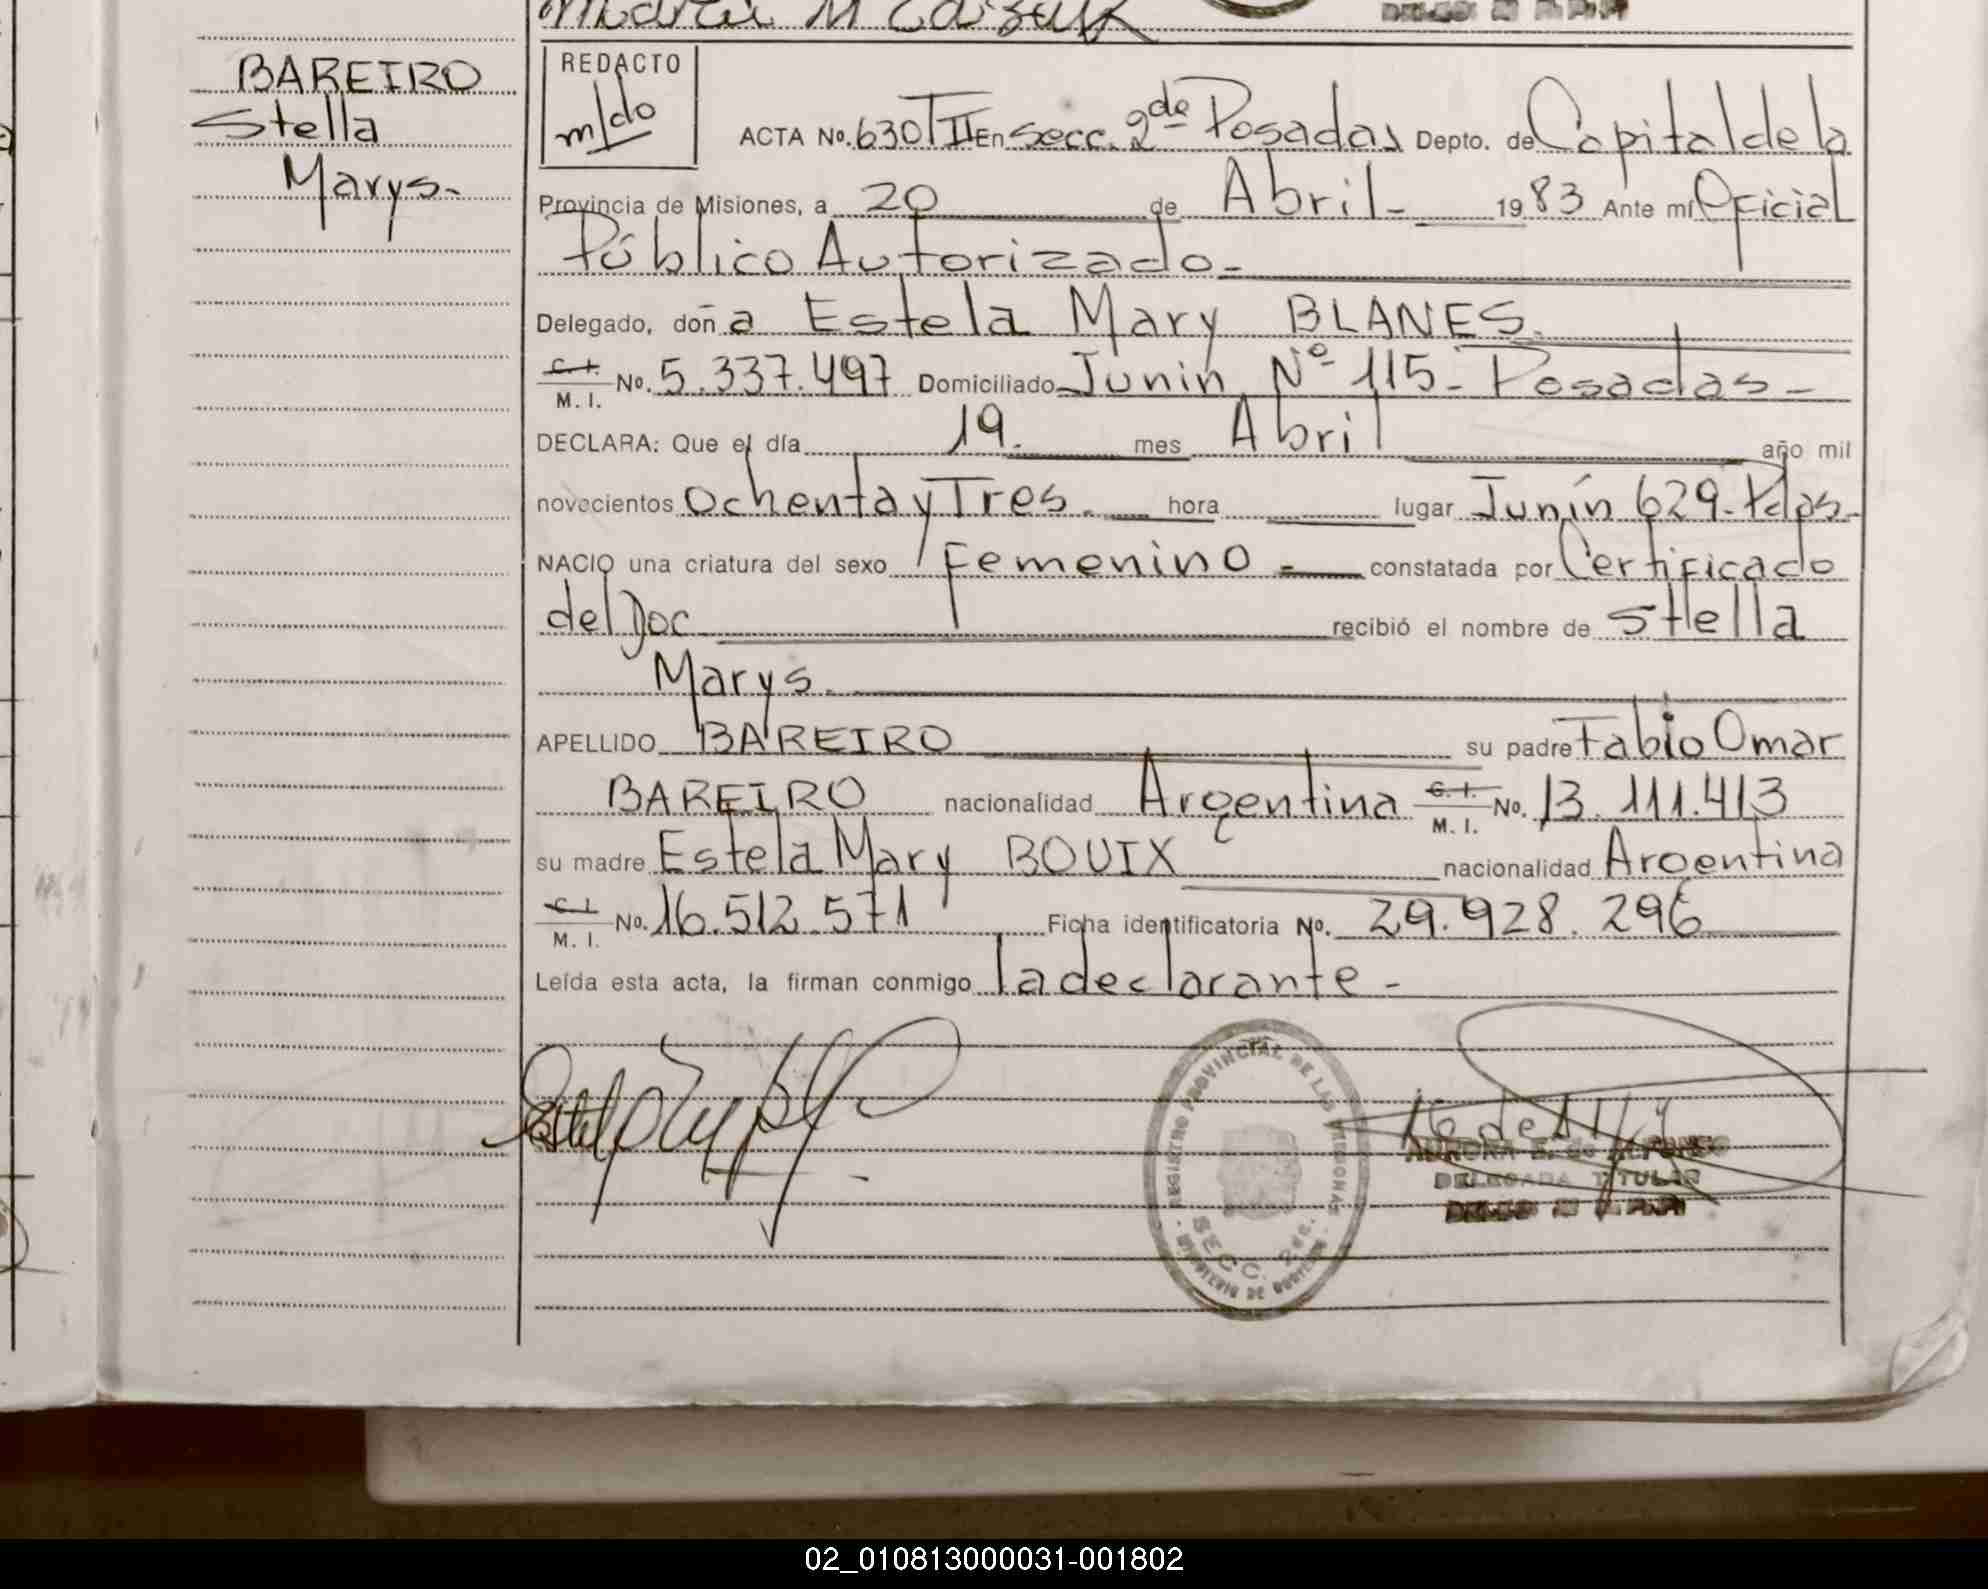 BAREIRO
Stella
Marys-
REDACTO
m/do
ACTA No. 630 TII En Secc. 2da Posadas Depto. de Capital de la
Provincia de Misiones, a 20 de Abril- 1983 Ante mí Oficial
Público Autorizado-
Delegado, doña Estela Mary BLANES.
C. I. M. I. No. 5.337.497 Domiciliado Junín Nº 115- Posadas-
DECLARA: Que el día 19. mes Abril año mil
novecientos Ochenta y Tres. hora lugar Junín 629-Pdas.
NACIO una criatura del sexo Femenino - constatada por Certificado
del Doc recibió el nombre de Stella
Marys.
APELLIDO BAREIRO su padre Fabio Omar
BAREIRO nacionalidad Argentina C. I. M. I. No. 13.111.413
su madre Estela Mary BOUIX nacionalidad Argentina
C. I. M. I. No. 16.512.571 Ficha identificatoria No. 29.928.296
Leída esta acta, la firman conmigo la declarante-
REGISTRO PROVINCIAL DE LAS PERSONAS
SECC. 2da.
MINISTERIO DE GOBIERNO
AURORA E. de ALFONSO
DELEGADA TITULAR
02_010813000031-001802